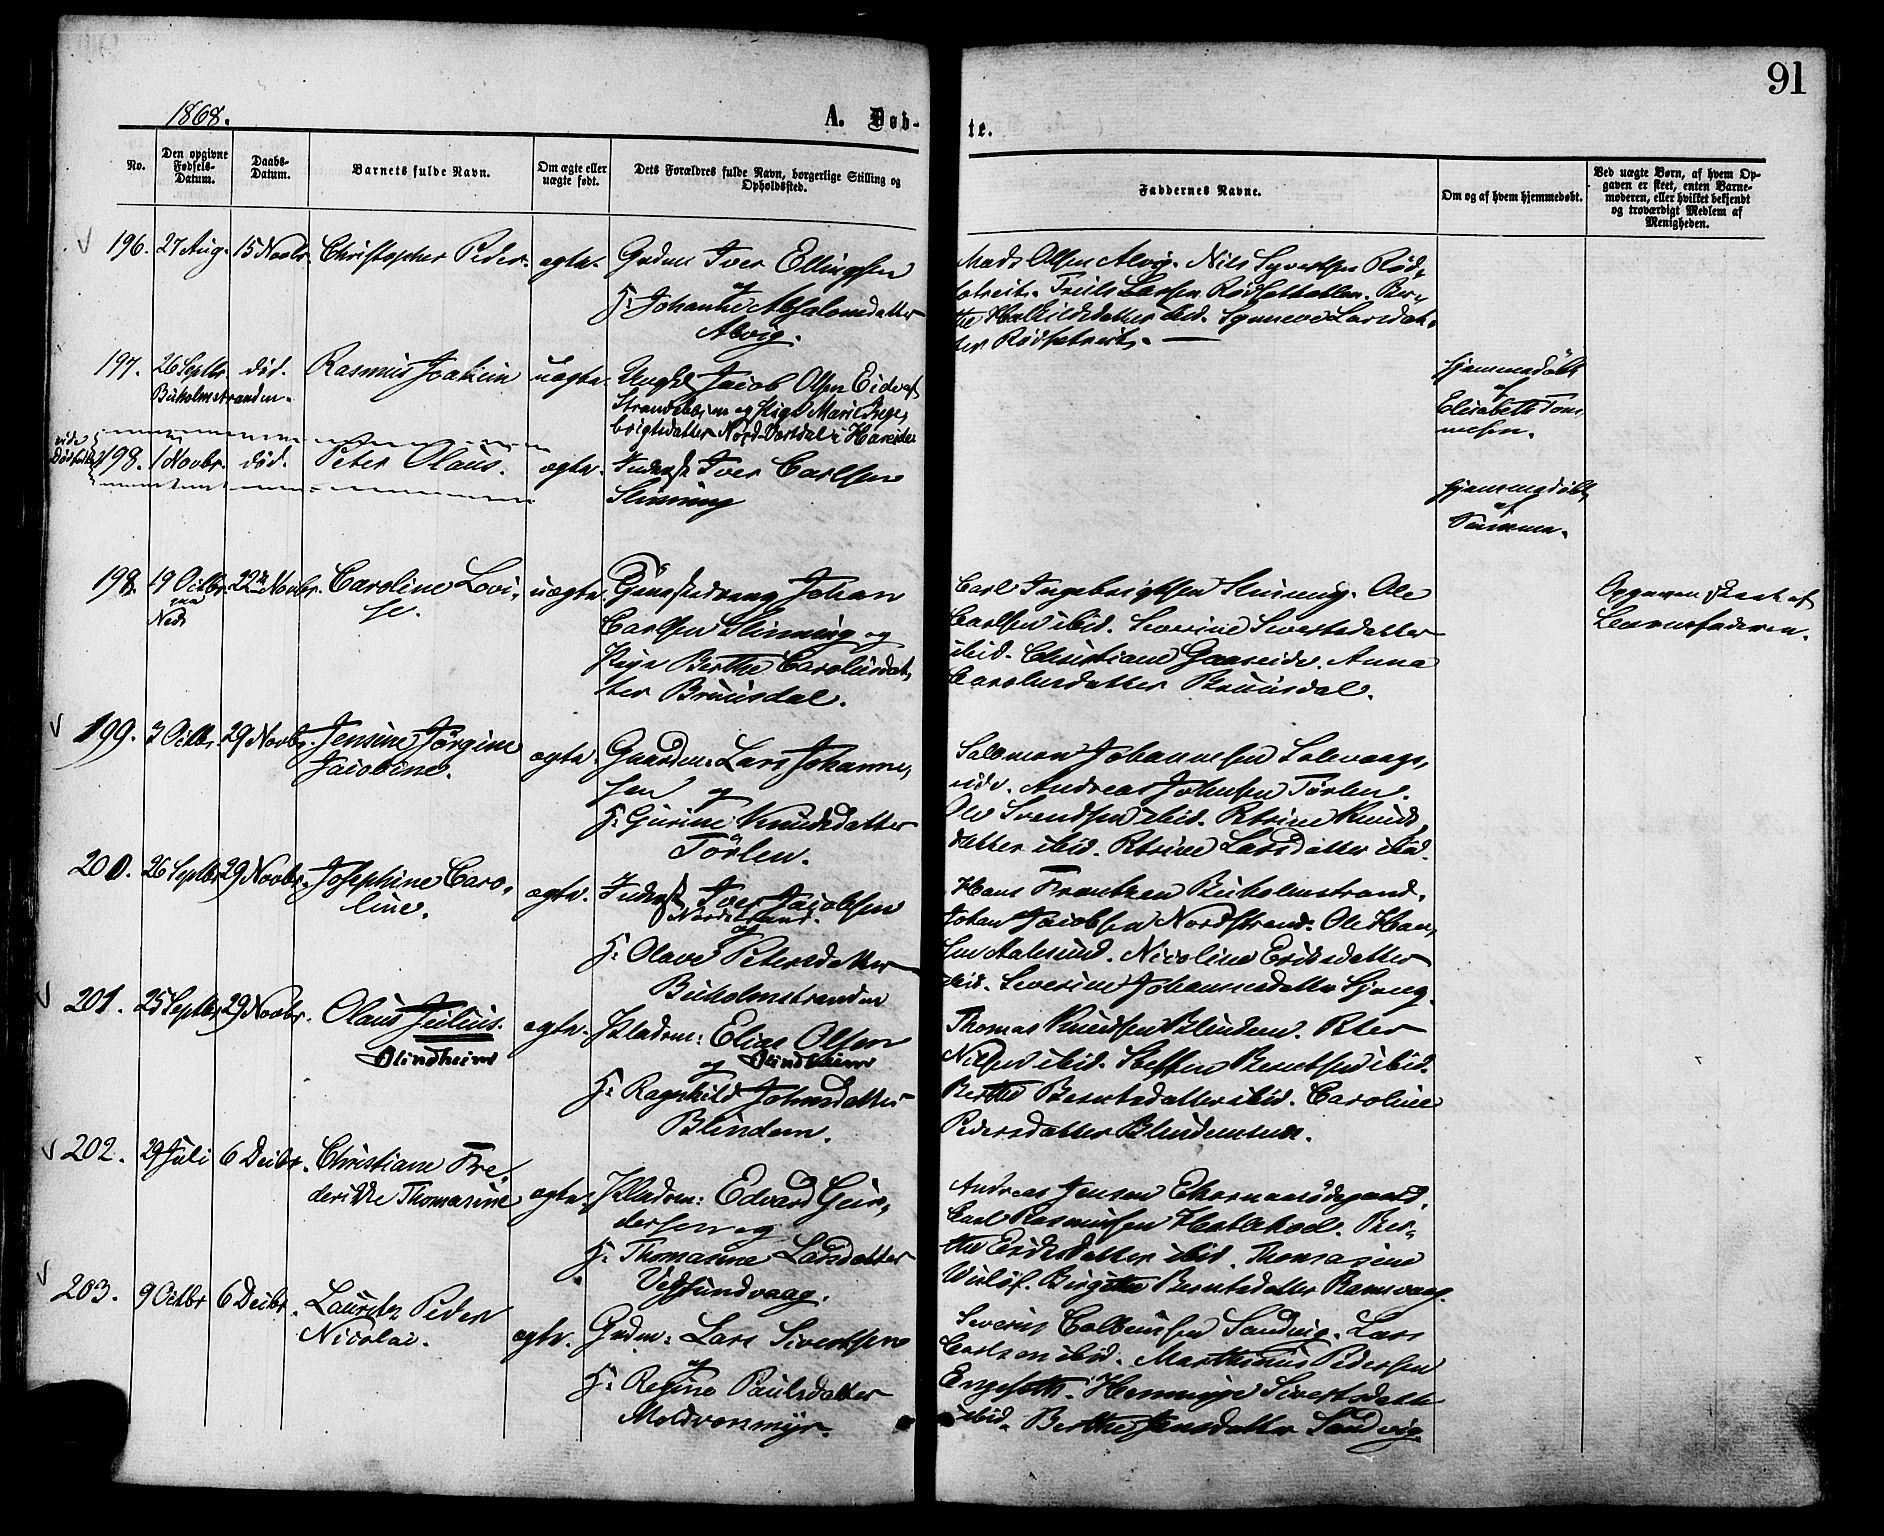 91
1868.
A. Døb-
te.
No.
Den opgivne
Fødsels-
Datum.
Daabs-
Datum.
Barnets fulde Navn.
Om ægte eller
uægte født.
Dets Forældres fulde Navn, borgerlige Stilling og
Opholdssted.
Faddernes Navne.
Om og af hvem hjemmedøbt.
Ved uægte Børn, af hvem Op-
gaven er skeet, enten Barne-
moderen, eller hvilket bekjendt
og troværdigt Medlem af
Menigheden.
196. 27 Aug. 15 Novbr. Christopher Peder. ægte. Gdm Iver Ellingsen
og
H: Johanne Absalonsdatter
Alvig.
Mads Olsen Alvig. Nils Syvertsen Rød-
sætreit. Troils Larsen Rødsetdalen. Ber-
the ibid. Synneve Larsdat-
ter Rødsetreit.
197. 26 Septbr død. Rasmus Joakim uægte. Ungk. Jacob Olsen Eidet
Buholmstranden.
Strandeboer og Pige Marie Inge-
brigtsdatter Nord-Vartdal i Hareide
hjemmedøbt
af
Elisabeth Tom-
mesen.
vide
198. 1 Novbr. død. Peter Olaus. ægte. Inderst Iver Carlsen
Slinning
hjemmedøbt
af
198. 19 Octbr. 22de Novbr. Caroline Lovi-
se.
uægte. Johan
Carlsen Slinning og
Pige Berthe Carolusdat-
ter Bruusdal.
Carl Ingebrigtsen Slinning. Ole
Carlsen ibid. Severine Sivertsdatter
ibid. Christiane Gaaseide. Anna
Carolusdatter Bruusdal.
Opgaven skeet af
Barnefaderen.
199. 3 Octbr. 29 Novbr. Jensine Jørgine
Jacobine.
ægte. Gaardm: Lars Johanne-
sen og
H: Gurine Knudsdatter
Tørlen.
Salomon Johannesen Solevaags-
eide. Andreas Johnsen Tørlen.
Ole Svendsen ibid. Petrine Knuds-
datter ibid. Petrine Larsdatter ibid.
200. 26 Septbr 29 Novbr. Josephine Caro-
line.
ægte. Inderst Iver Jacobsen
Nordstrand.
og
H: Olave Petersdatter
Buholmstranden
Hans Frantzen Buholmstrand.
Johan Jacobsen Nordstrand. Ole Han-
sen Aalesund. Nicoline Eriksdatter
ibid. Severine Johannesdatter Gjong.
201. 25 Septbr 29 Novbr. Olaus Julius.
Blindheim
ægte. Pladsm: Elias Olsen
Blindheim
og
H: Ragnhild Johnsdatter
Blindem.
Thomas Knudsen Blindem. Peter
Nilsen ibid. Steffen Berntsen ibid.
Berthe Berntsdatter ibid. Caroline
Pedersdatter Blindemsun.
202. 29 Juli 6 Decbr. Christiane Fre-
derikke Thomasine
ægte. Pladsm: Edvard Gun-
dersen og
H: Thomasine Larsdatter
Vegsundvaag.
Andreas Jensen Ekornaasødegaard.
Carl Rasmusen Ber-
the datter ibid. Thomasine
Birgithe Berntsdatter Ramsvaag.
203. 9 Octbr 6 Decbr. Lauritz Peder
Nicolai.
ægte. Gdm: Lars Sivertsen
og
H: Regine Paulsdatter
Moldvormyr.
Severin Colbeinsen Sandvig. Lars
Carlsen ibid. Marthinus Pedersen
Engeseth. Hennigge Sivertsdatter
ibid. Berthe Jensdatter Sandvig.